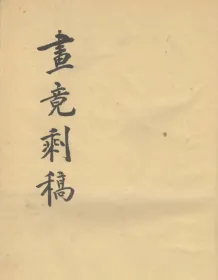 畫竟剩稿